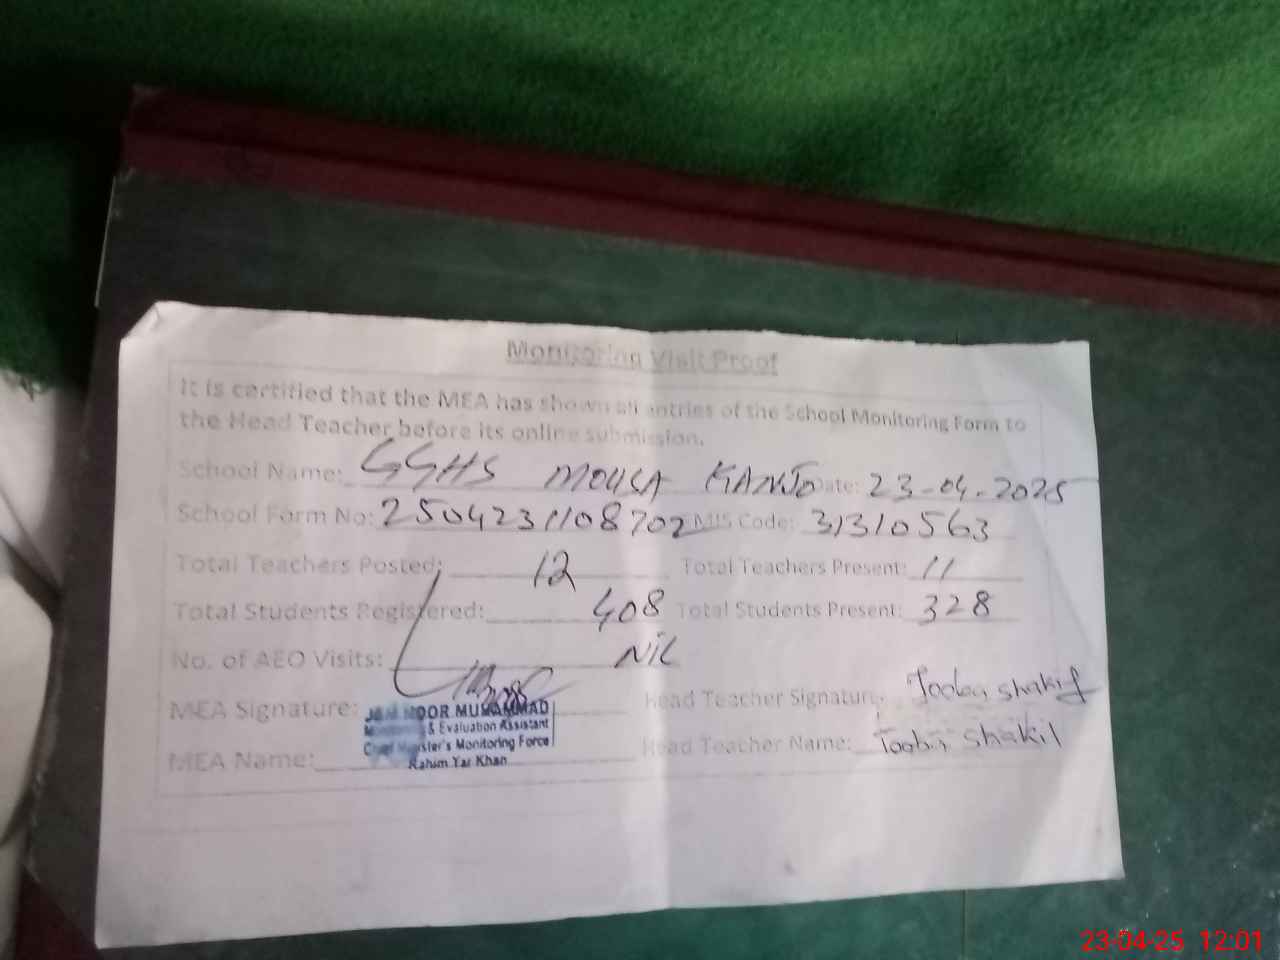 Monitoring Visit Proof
It is certified that the MEA has shown all entries of the School Monitoring Form to
the Head Teacher before its online submission.
School Name: GGHS MOUSA KANJO Date: 23-04-2025
School Form No: 2504231108702 MIS Code: 31310563
Total Teachers Posted: 12 Total Teachers Present: 11
Total Students Registered: 408 Total Students Present: 328
No. of AEO Visits: Nil
MEA Signature: Head Teacher Signature: Tooba shakil
NOOR MUHAMMAD
Monitoring & Evaluation Assistant
Chief Minister's Monitoring Force
Rahim Yar Khan
MEA Name: Head Teacher Name: Tooba shakil
23-04-25 12:01